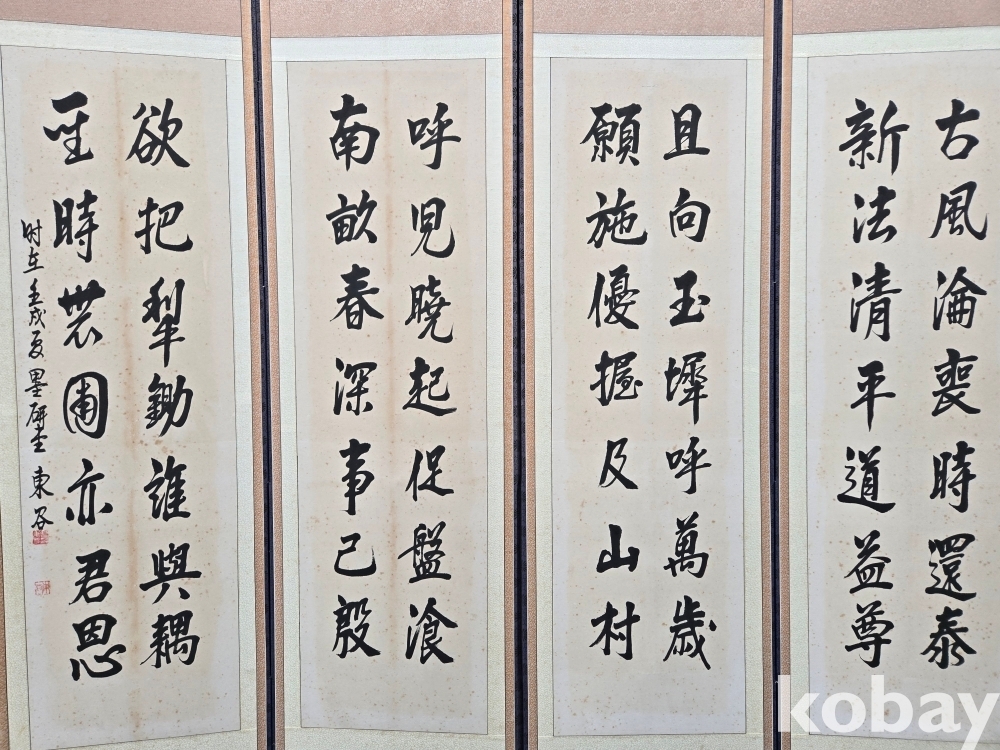 古風淪喪時還泰
新法清平道益尊
且向玉墀呼萬歲
願施優握及山村
呼兒曉起促盤湌
南畝春深事已殷
欲把犁鋤誰與耦
聖時農圃亦君恩
时在壬戌夏墨研堂 東谷
kobay